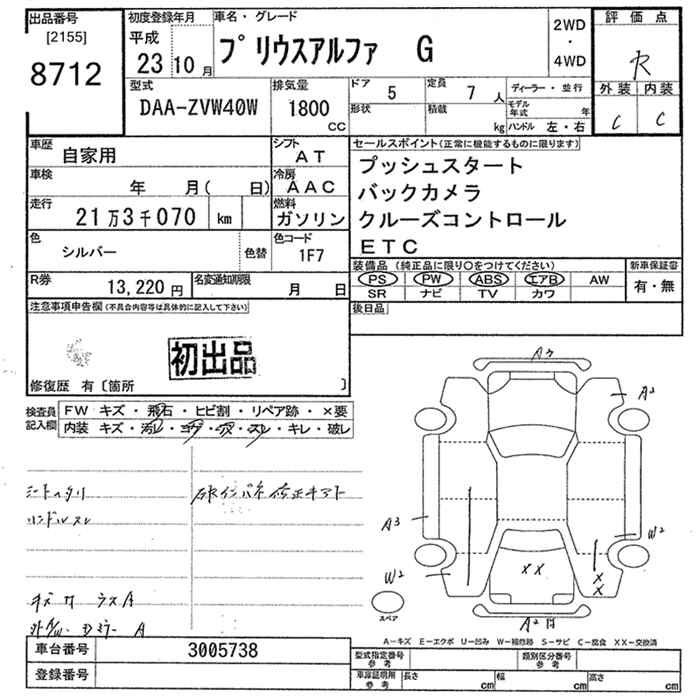 出品番号
[2155]
8712
初度登録年月
平成
23 10月
車名・グレード
プリウスアルファ G
2WD
・
4WD
評価点
R
外装 内装
C C
型式
DAA-ZVW40W
排気量
1800
CC
ドア
5
定員
7人
形状
積載
kg
ディーラー・並行
モデル年式 年
ハンドル 左・右
車歴
自家用
シフト
AT
車検
年 月( 日)
冷房
AAC
走行
21万3千070 km
燃料
ガソリン
色
シルバー
色替
色コード
1F7
R券
13,220円
名変通知期限
月 日
セールスポイント(正常に機能するものに限ります)
プッシュスタート
バックカメラ
クルーズコントロール
ETC
装備品(純正品に限り○をつけてください)
PS PW ABS エアB AW
SR ナビ TV カワ
新車保証書
有・無
後日品
注意事項申告欄(不具合内容等は具体的に記入して下さい)
初出品
修復歴 有〔箇所 〕
検査員
記入欄
FW キズ・飛石・ヒビ割・リペア跡・×要
内装 キズ・汚レ・コゲ・穴・スレ・キレ・破レ
シートヘタリ
ハンドルスレ
キズ
A
A
A2
A3
W2
W2
XX
X
X
A2
スペア
A-キズ E-エクボ U-凹み W-補修跡 S-サビ C-腐食 XX-交換済
車台番号
3005738
登録番号
型式指定番号
参考
類別区分番号
参考
車庫証明用
参考
長さ cm
幅 cm
高さ cm